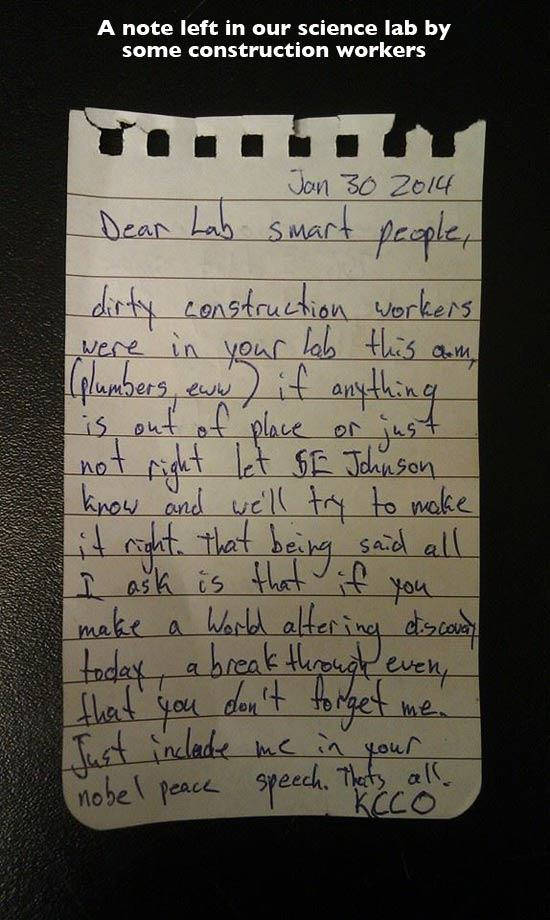 A note left in our science lab by
some construction workers
Jan 30 2014
Dear Lab smart people,
dirty construction workers
were in your lab this a.m,
(plumbers, eww) if anything
is out of place or just
not right let SE Johnson
know and we'll try to make
it right. That being said all
I ask is that if you
make a World altering discovery
today, a break through even,
that you don't forget me.
Just include me in your
nobel peace speech. Thats all.
KCCO